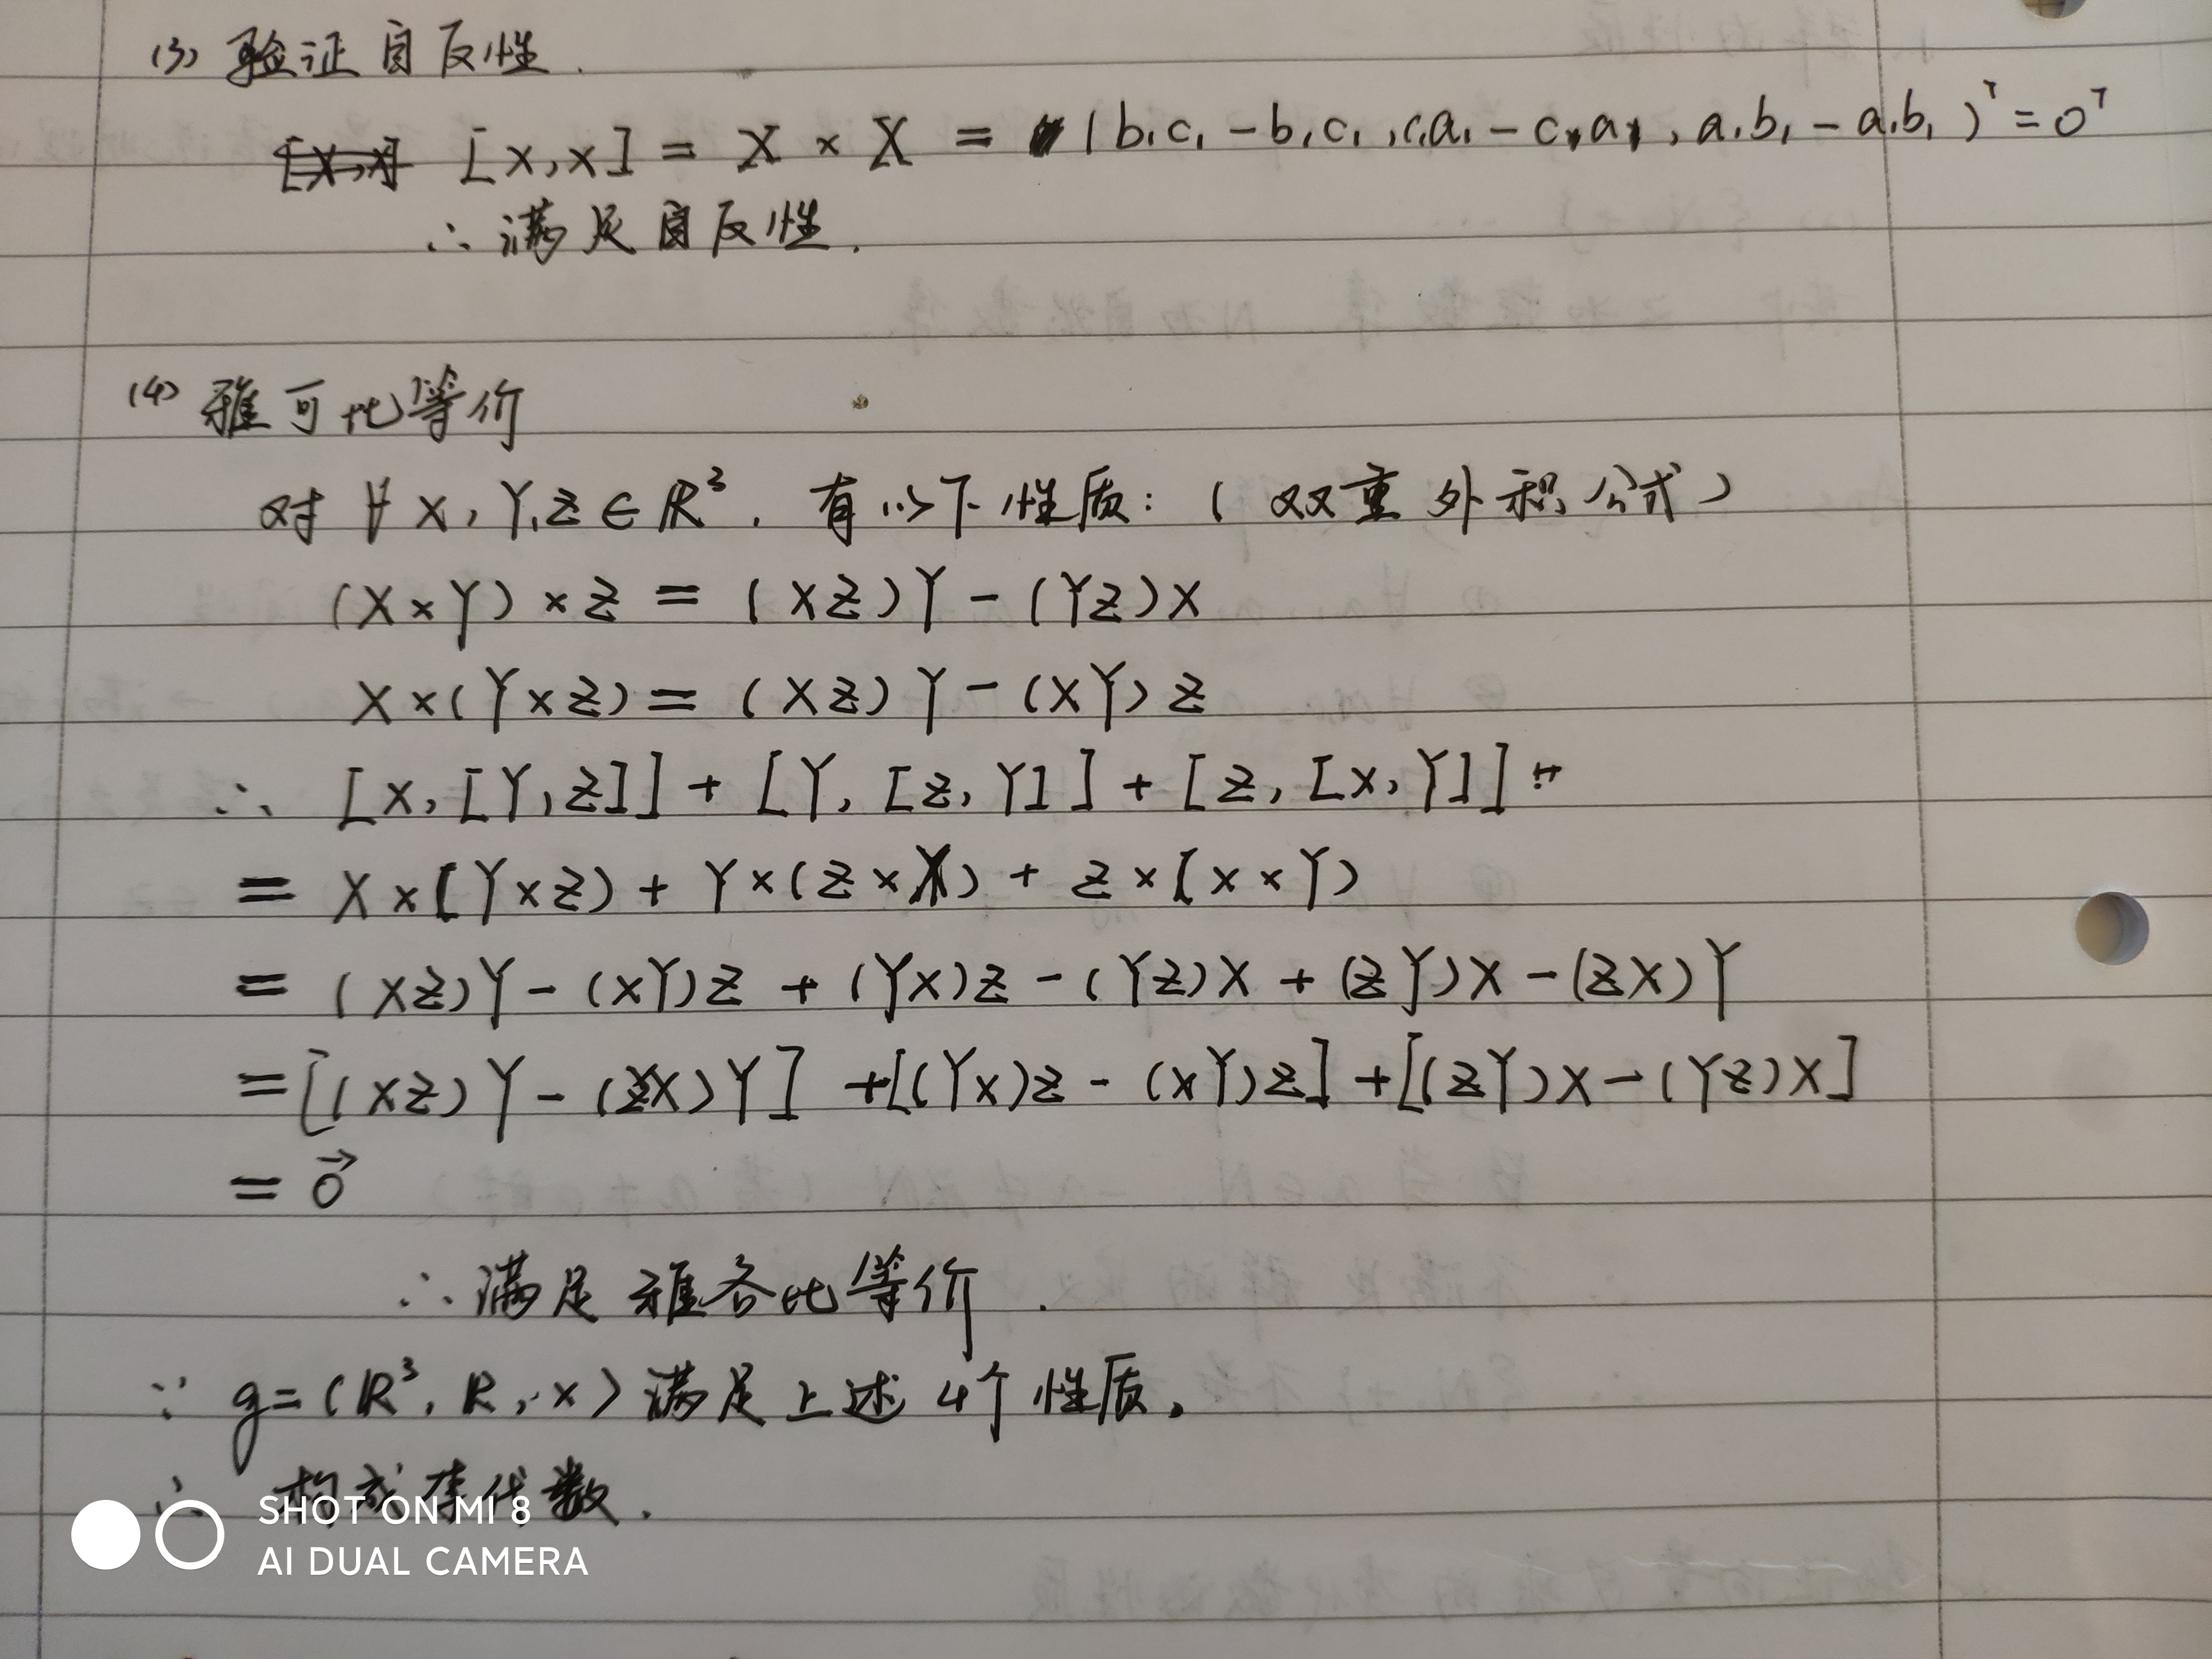 (3) 验证自反性.
[X,X] = X × X = (b₁c₁ - b₁c₁, c₁a₁ - c₁a₁, a₁b₁ - a₁b₁)ᵀ = 0ᵀ
∴ 满足自反性.
(4) 雅可比等价
对 ∀ X, Y, Z ∈ R³. 有以下性质: (双重外积公式)
(X×Y) × Z = (XZ)Y - (YZ)X
X×(Y×Z) = (XZ)Y - (XY)Z
∴ [X, [Y,Z]] + [Y, [Z,Y]] + [Z, [X,Y]]
= X×(Y×Z) + Y×(Z×X) + Z×(X×Y)
= (XZ)Y - (XY)Z + (YX)Z - (YZ)X + (ZY)X - (ZX)Y
= [(XZ)Y - (ZX)Y] + [(YX)Z - (XY)Z] + [(ZY)X - (YZ)X]
= 0⃗
∴ 满足雅各比等价.
∵ g = (R³, R, ×) 满足上述4个性质.
∴ 构成李代数.
SHOT ON MI 8
AI DUAL CAMERA